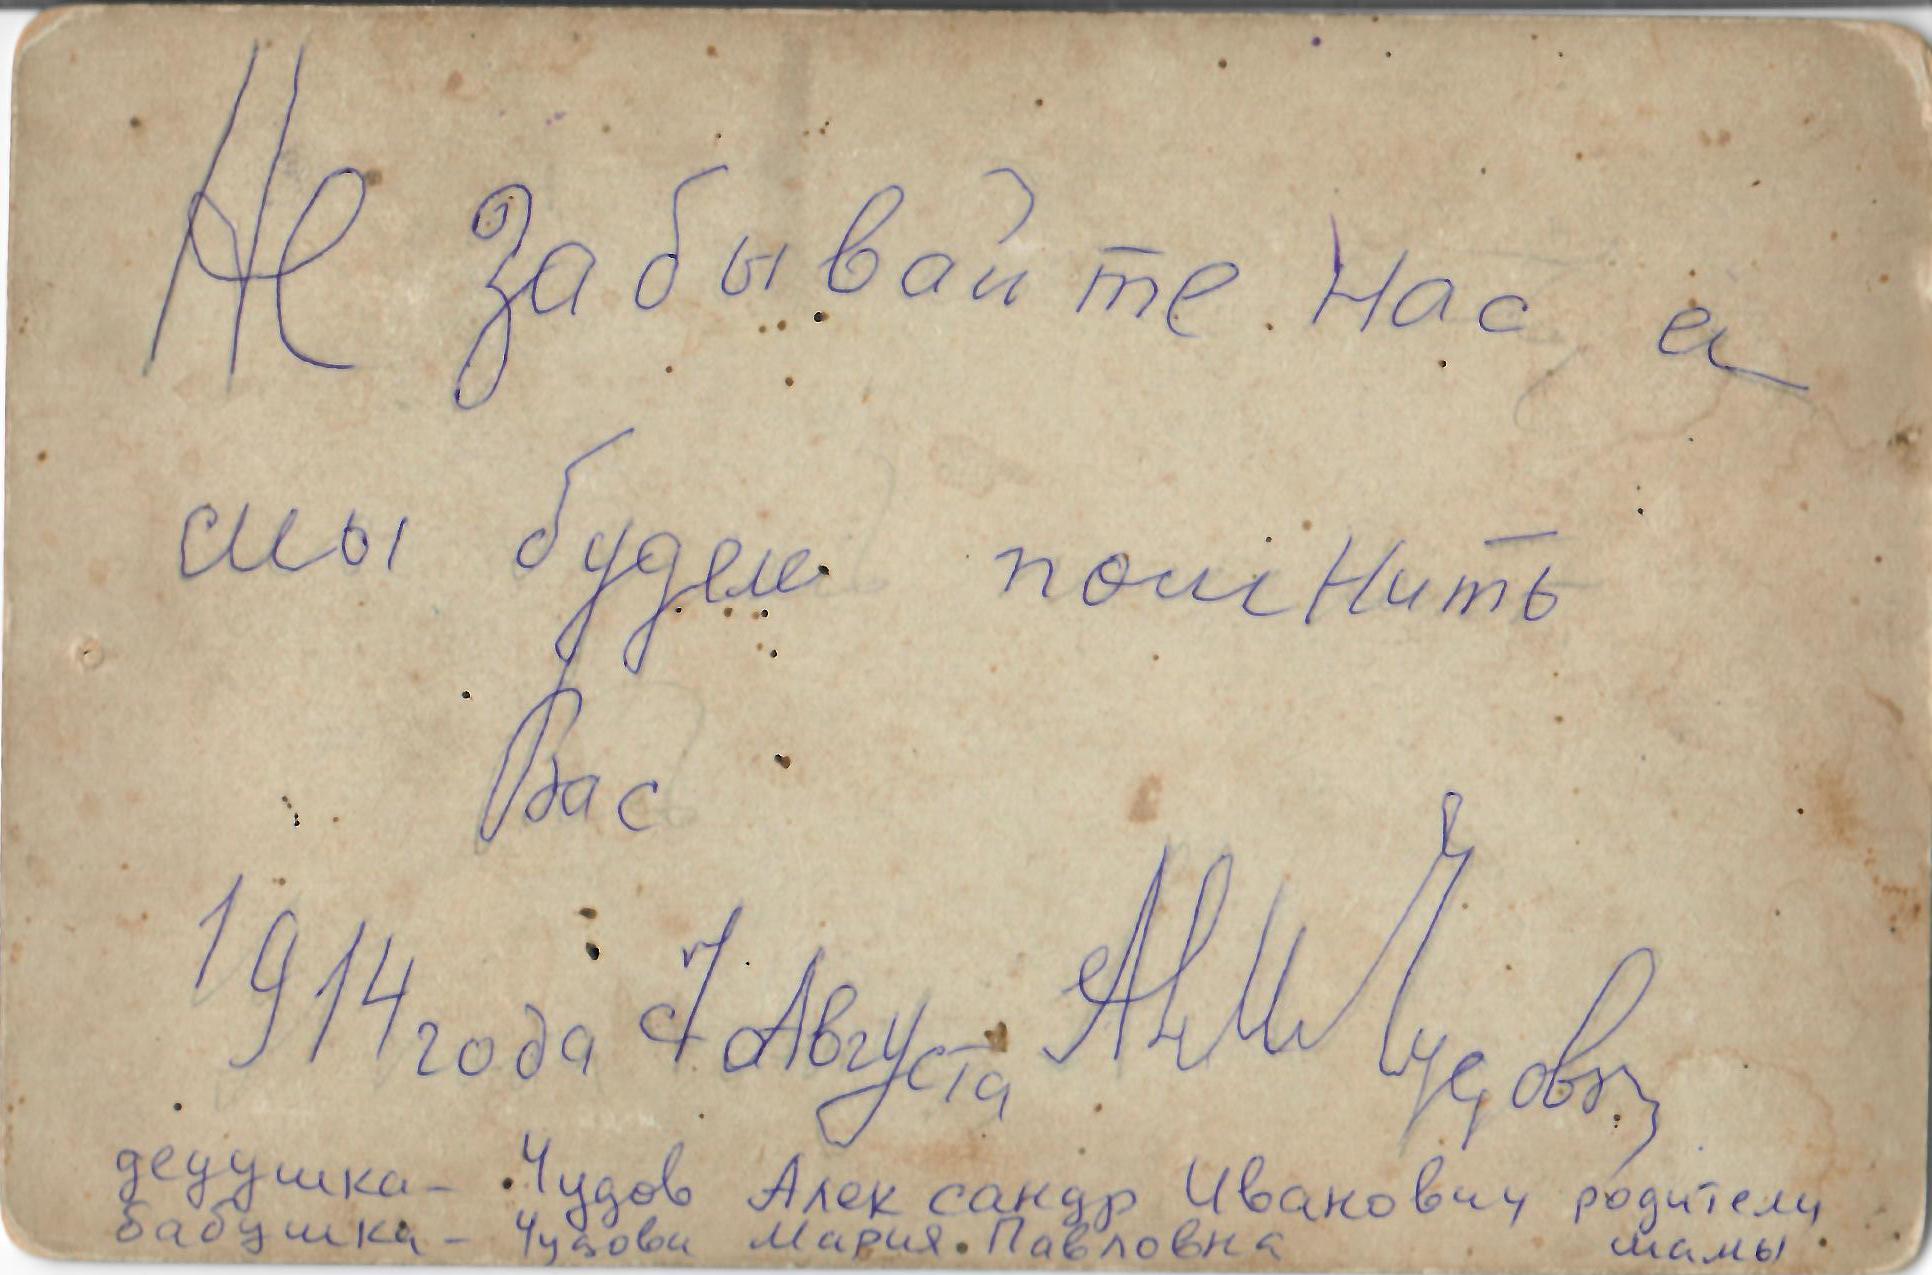 Не забывайте нас, а
мы будем помнить
Вас
1914 года 7 Августа А и М Чудовы
дедушка - Чудов Александр Иванович родители
бабушка - Чудова Мария Павловна мамы